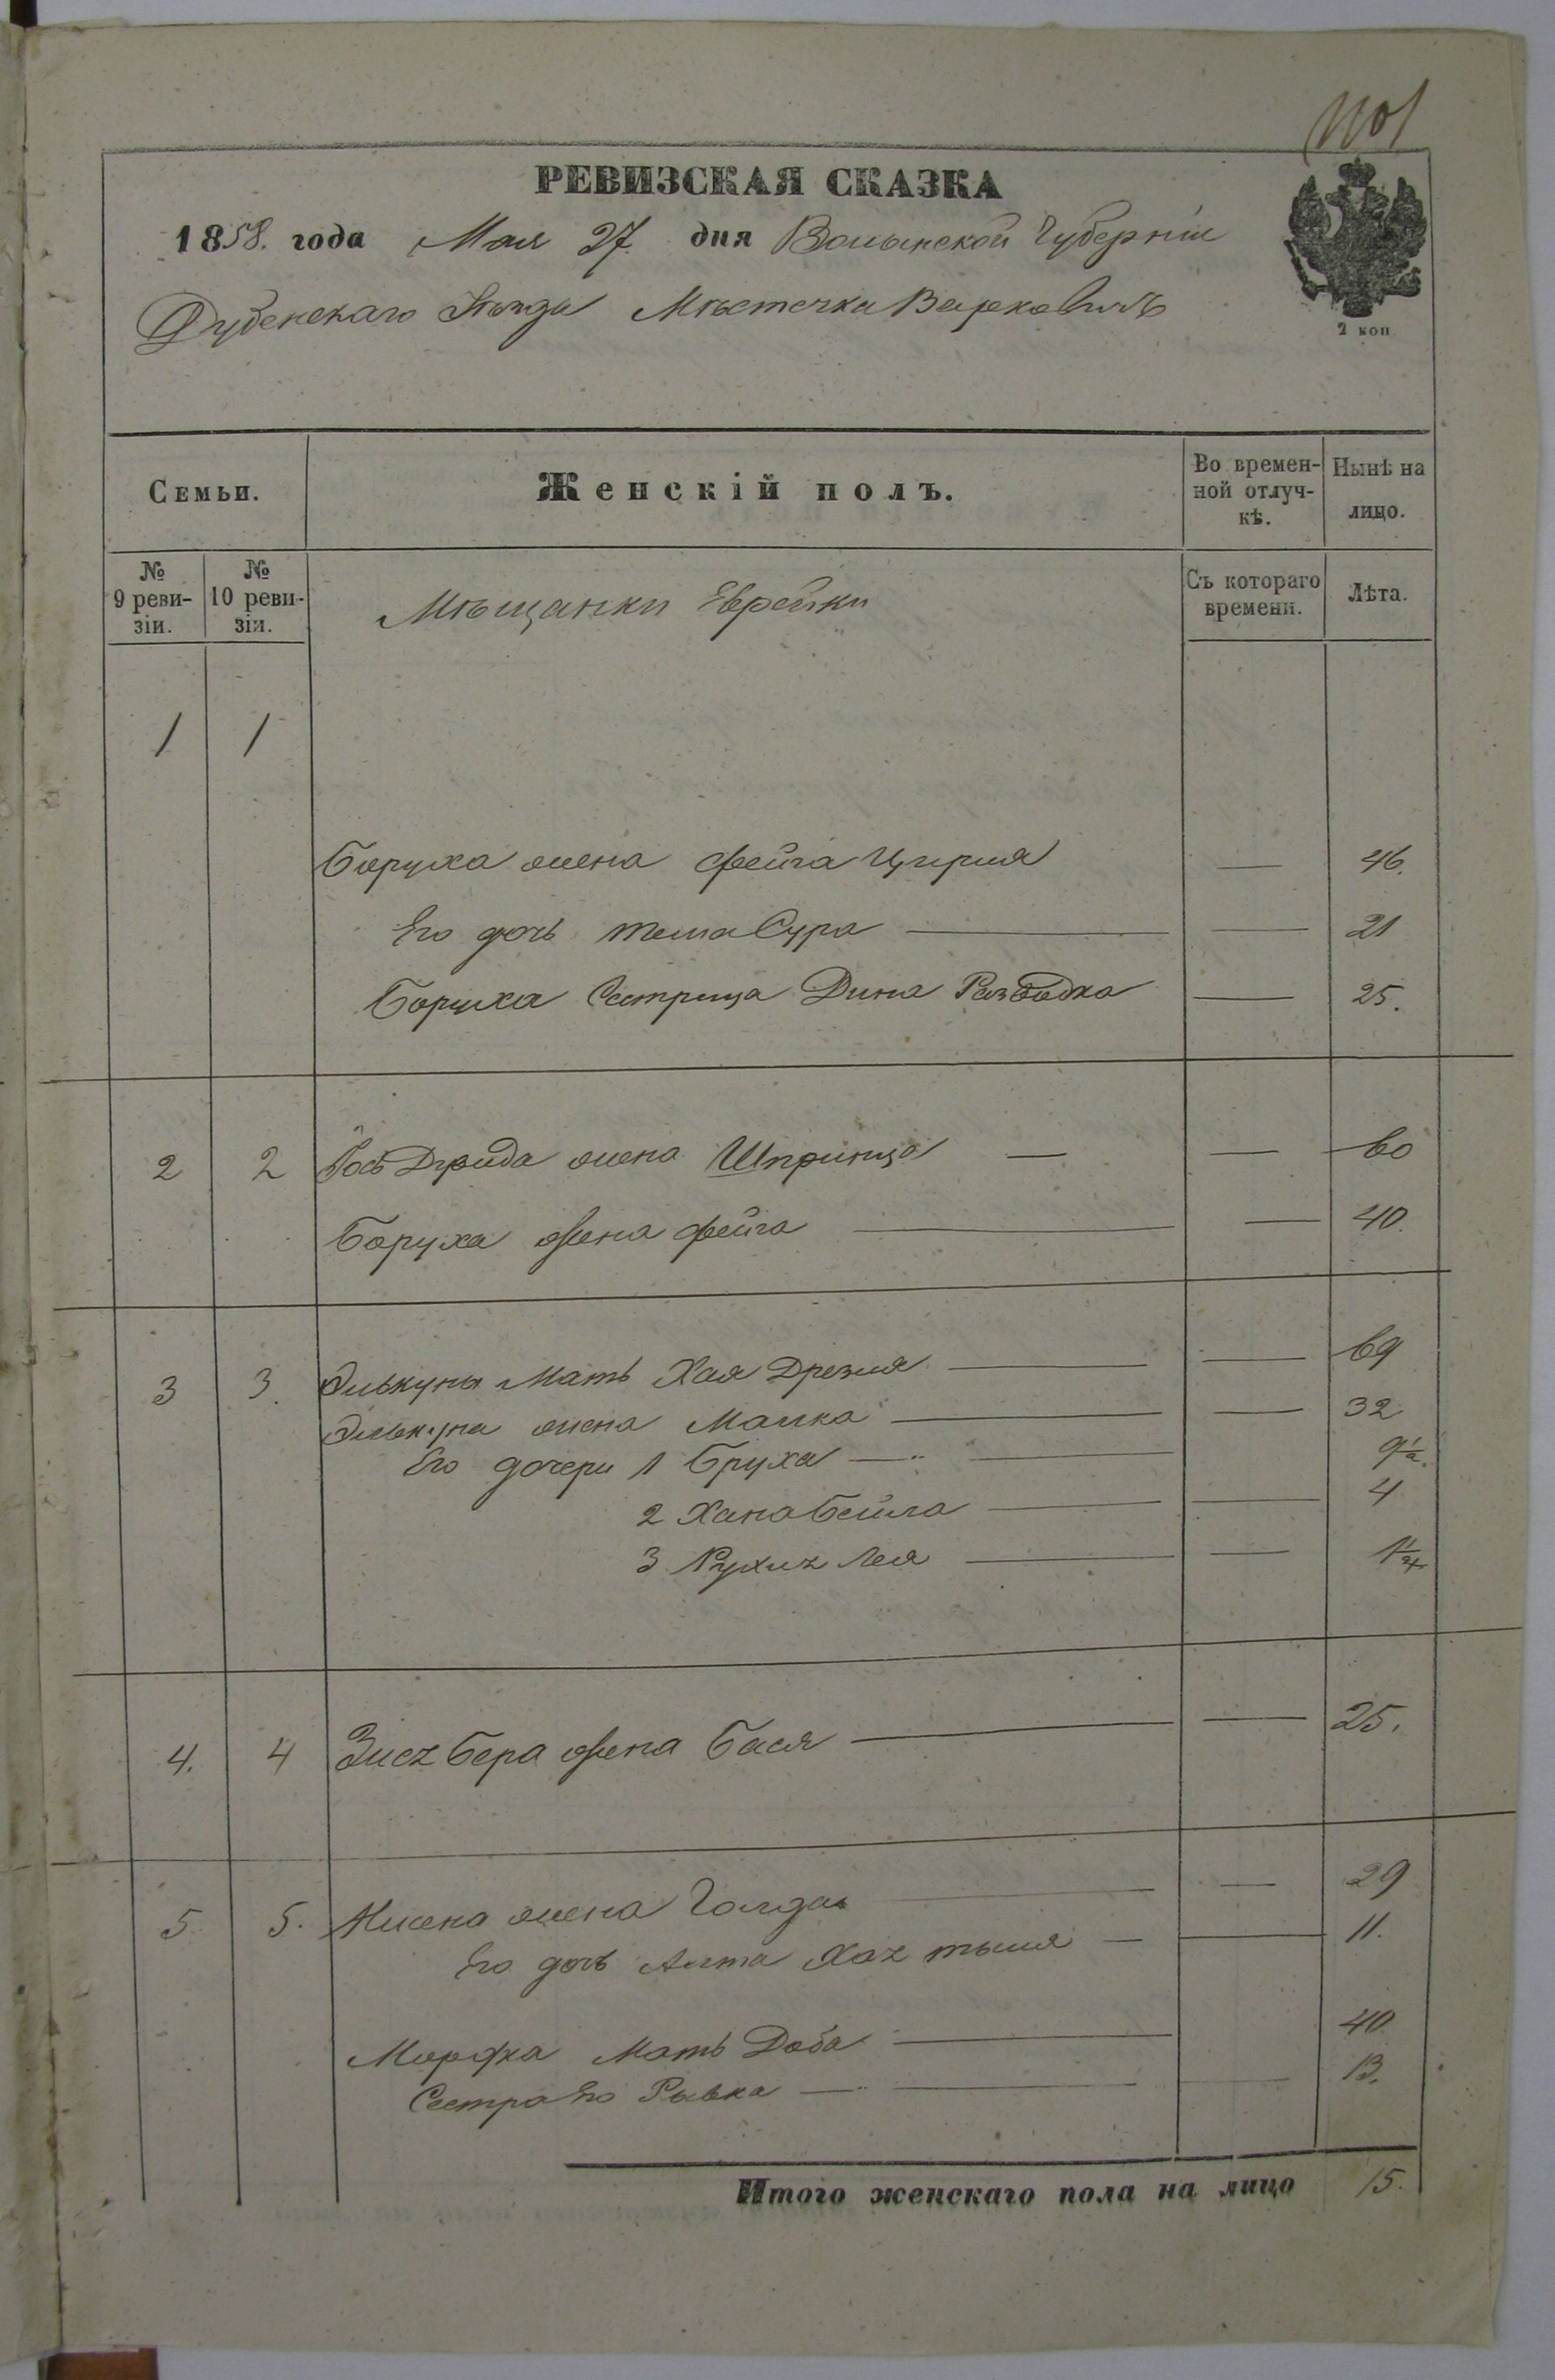 1101
РЕВИЗСКАЯ СКАЗКА
1858. года Мая 27. дня Волынской Губерніи
Дубенскаго Уѣзда Мѣстечка Верковичъ
2 коп.
Семьи. Женскій полъ. Во временной отлучкѣ. Нынѣ на лицо.
№ 9 ревизіи. № 10 ревизіи. Мѣщанки Еврейки Съ котораго времени. Лѣта.
1 1
Боруха жена Фейга Цирля — 46.
Его дочь Тема Сура — — 21
Боруха Сестрица Дина Разводка — 25.
2 2 Іось Дувида жена Шпринца — — 60
Боруха жена Фейга — — 40.
3 3. Элькуны Мать Хая Дрезля — — 69
Элькуна жена Малка — — 32
Его дочери 1 Бруха — — 9½.
2 Хана Бейла — — 4
3 Рухлz Лея — —
4. 4 Зисz Бера жена Бася — — 25.
5 5. Нисена жена Голда — — 29
Его дочь Алта Хаz — — 11.
Мордка Мать Доба — 40
Сестра Его Рывка — — — 13.
Итого женскаго пола на лицо 15.